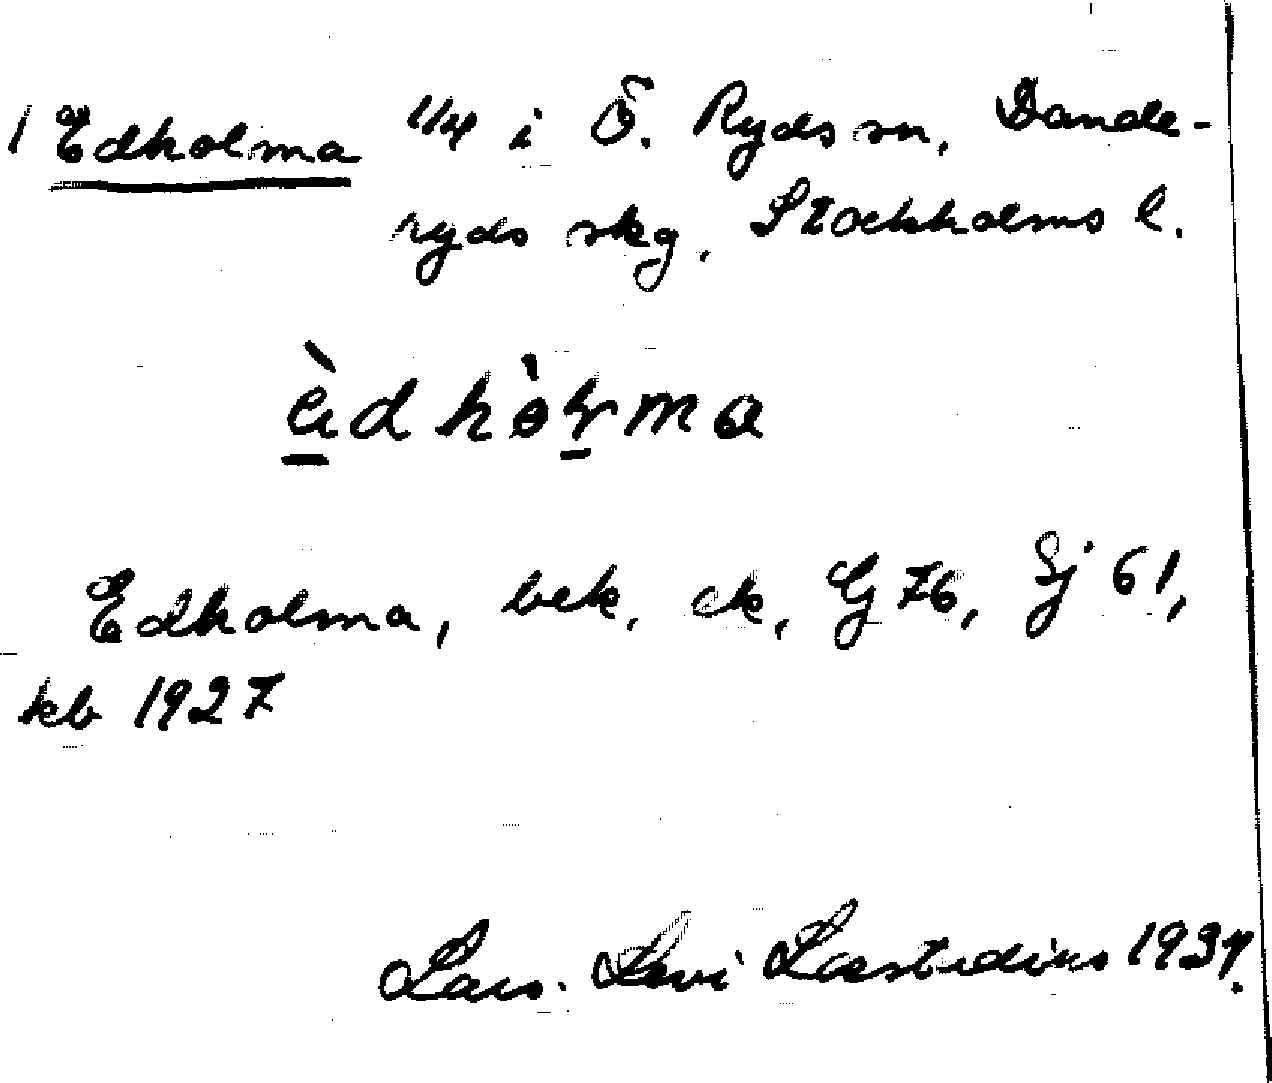 1 Edholma 1/4 i Ö. Ryds sn, Dande-
ryds skg, Stockholms l.
àdhòɽma
Edholma, bek. ek, G 76, Sj 61,
kb 1927
Lars. Levi Læstadius 1934.